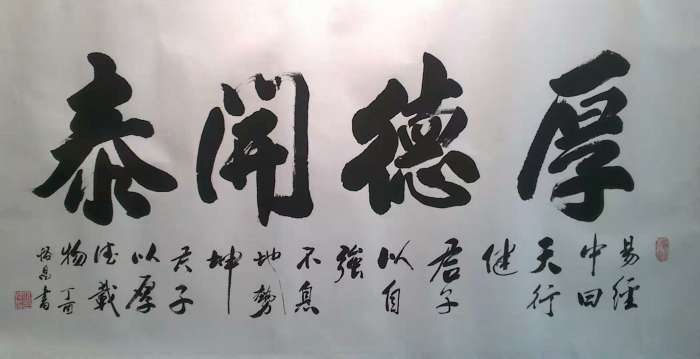 厚德開泰
易經
中曰
天行
健
君子
以自
強
不息
地勢
坤
君子
以厚
德載
物
昌書